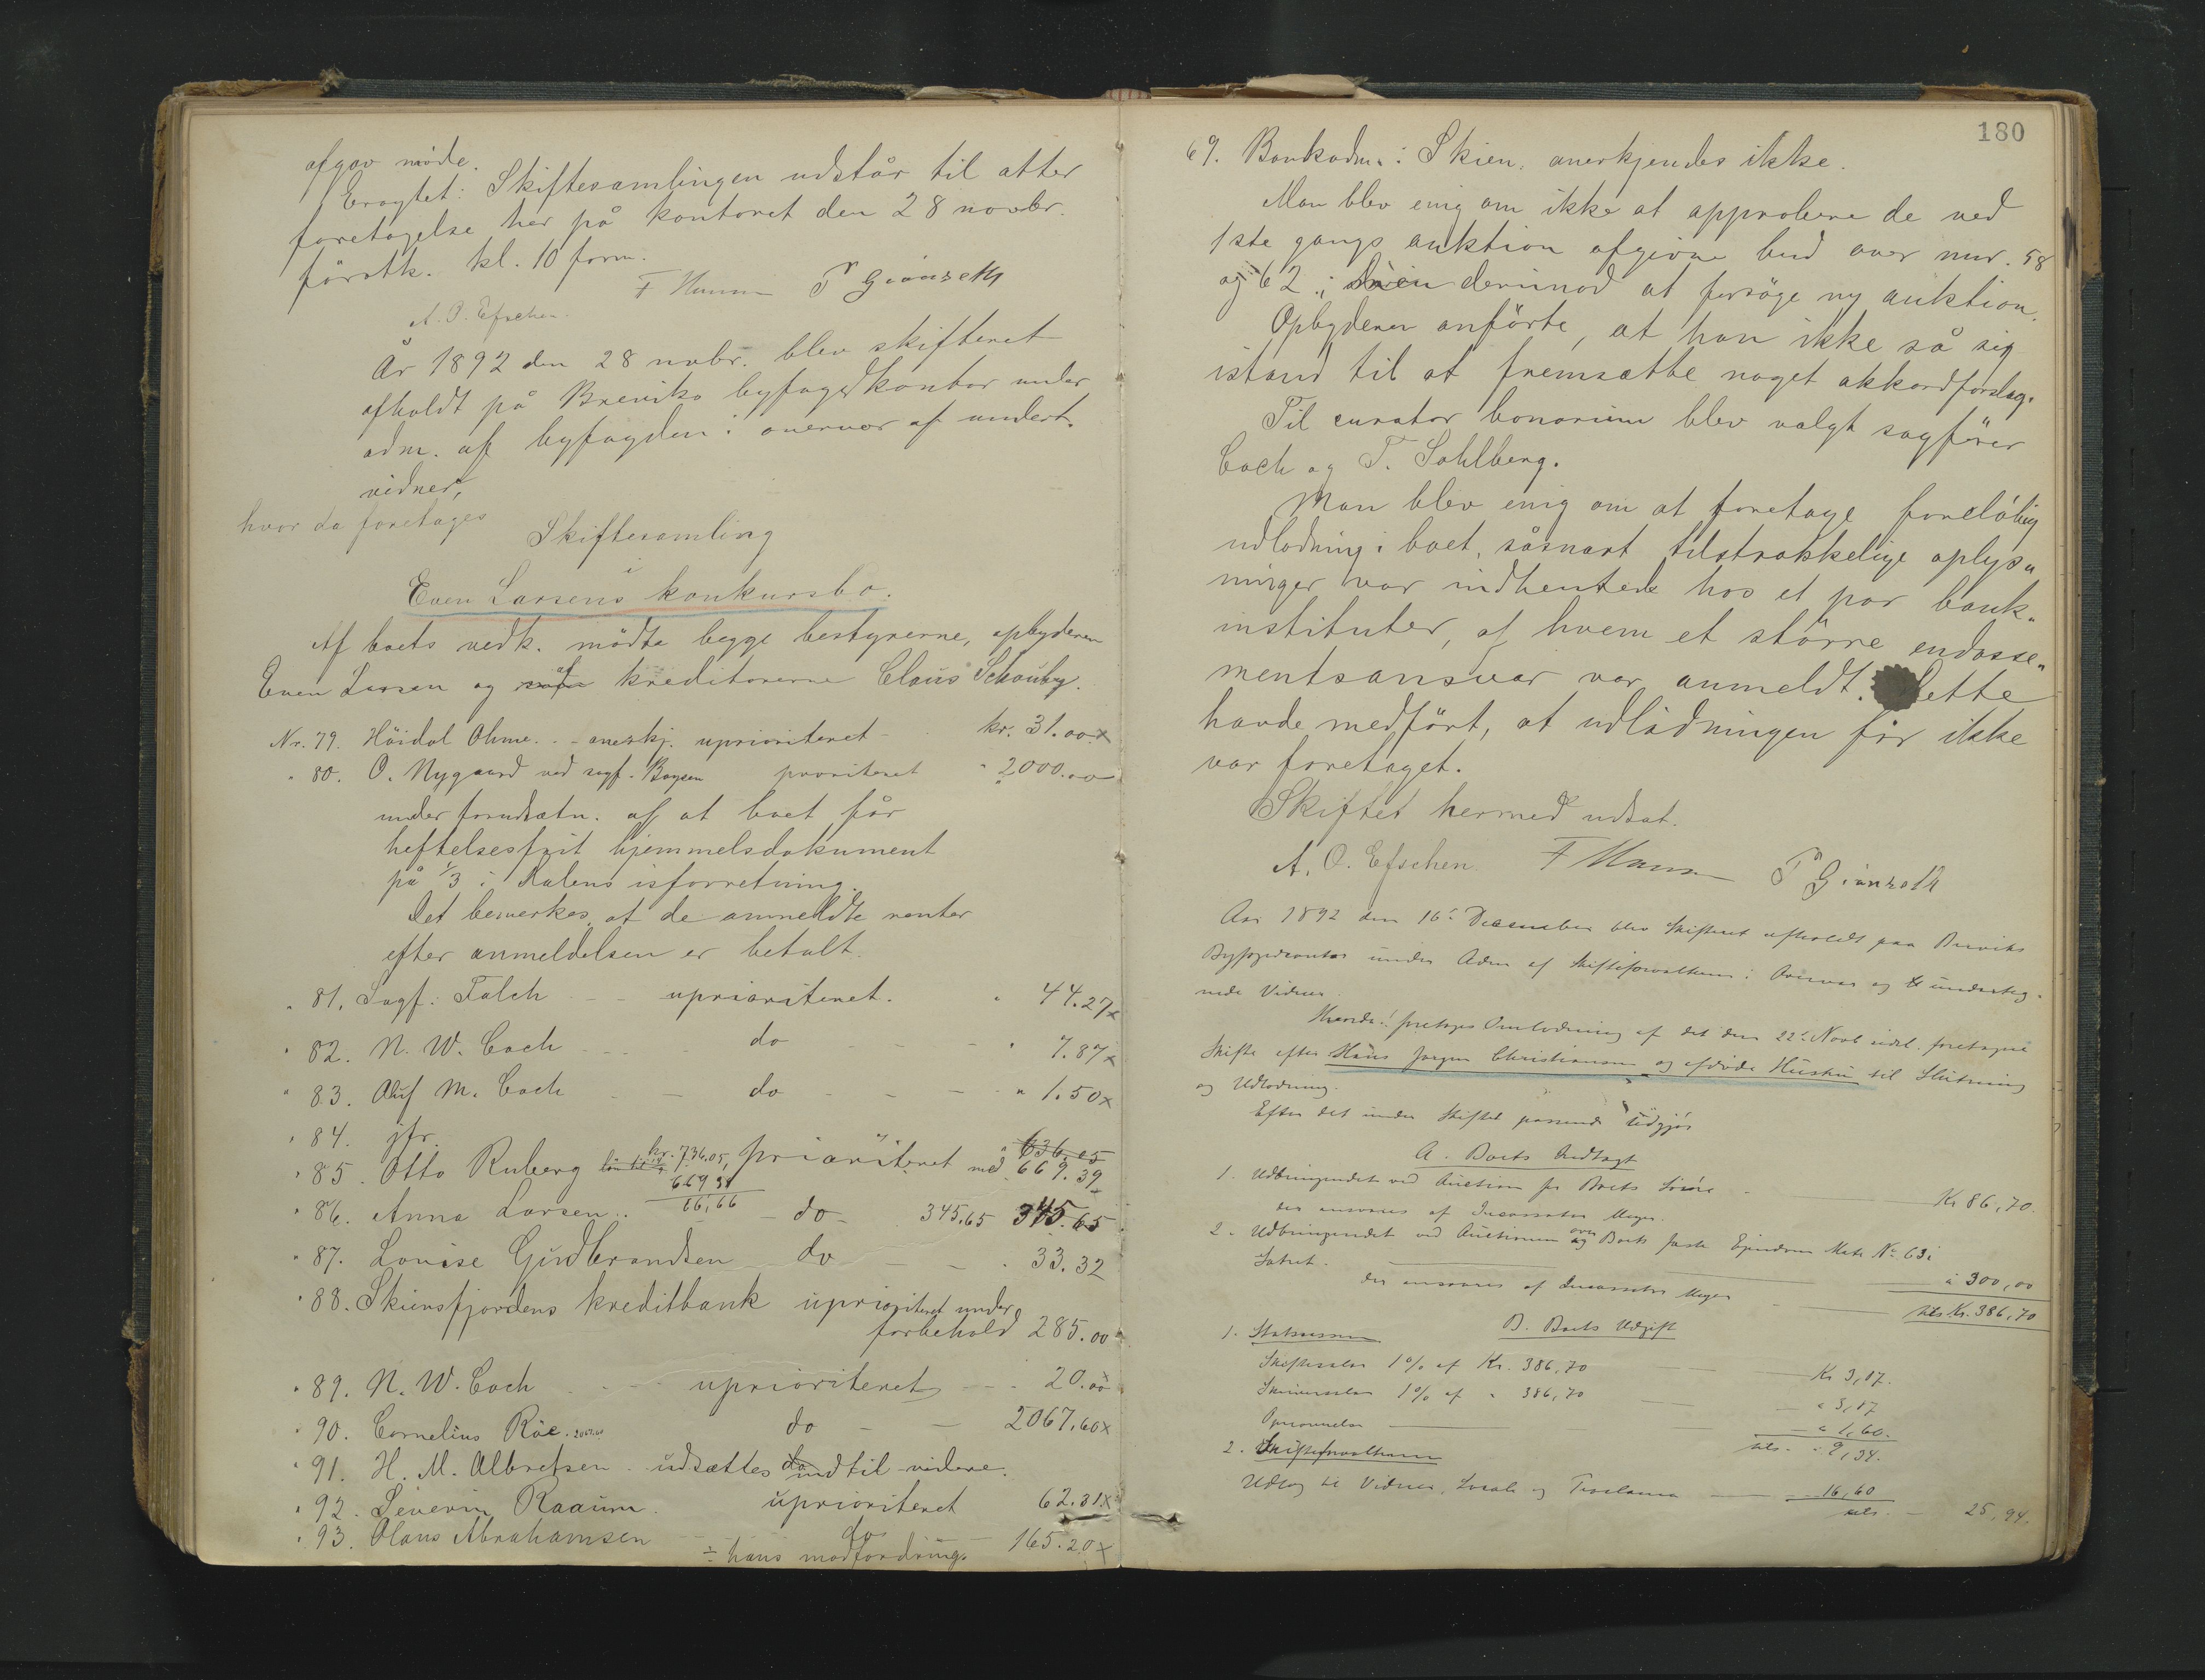 afgav møde.
Eragtet: Skiftesamlingen udstår til atter
foretagelse her på kontoret den 28 novbr.
førstk. kl. 10 form.
F Mann P Grønseth
A. O. Efschen.
År 1892 den 28 novbr. blev skifteret
afholdt på Breviks byfogedkontor under
adm. af byfogden i overvær af undert.
vidner,
hvor da foretages
Skiftesamling
i
Even Larsens konkursbo.
Af boets vedk. mødte begge bestyrerne, opbyderen
Even Larsen og af kreditorerne Claus Schouby.
Nr. 79. Höidal Ohme. - anerkj. uprioriteret - kr. 31.00 x
" 80. O. Nygaard ved sagf. Boysen prioriteret " 2000.00
under forudsætn. af at boet får
heftelsesfrit hjemmelsdokument
på 1/3 i Dalens isforretning.
Det bemerkes, at de anmeldte renter
efter anmeldelsen er betalt.
" 81. Sagf: Falch - - uprioriteret. " 44.27 x
" 82. N. W. Coch - - do - - " 7.87 x
" 83. Oluf M. Coch - - do - - " 1.50 x
" 84. jfr.
" 85. Otto Ruberg kr. 736.05, prioriteret med 636.05 669.39
669 39
66,66
" 86. Anna Larsen .. - do - 345.65 345.65
" 87. Lovise Gudbrandsen do - - 33.32
" 88. Skiensfjordens kreditbank uprioriteret under
forbehold 285.00
" 89. N. W. Coch - - uprioriteret - - 20.00
" 90. Cornelius Röe. 2067.60 do - - 2067.60 x
" 91. H. M. Albretsen - udsættes indtil videre.
" 92. Severin Raaum. uprioriteret 62.31 x
" 93. Olaus Abrahamsen - do 165.20 x
÷ hans modfordring.
180
69. Bankadm. i Skien. anerkjendes ikke.
Man blev enig om ikke at approbere de ved
1ste gangs auktion afgivne bud over nur. 58
og 62 i men derimod at forsøge ny auktion.
Opbyderen anførte, at han ikke så sig
istand til at fremsætte noget akkordforslag.
Til curator bonorum blev valgt sagfører
Coch og T. Sahlberg.
Man blev enig om at foretage foreløbig
udlodning i boet, såsnart tilstrækkelige oplys-
ninger var indhentede hos et par bank-
instituter, af hvem et større endosse-
mentsansvar var anmeldt. Dette
havde medført, at udlodningen før ikke
var foretaget.
Skiftet hermed udsat.
A. O. Efschen F Mann P Grønseth
Aar 1892 den 16de December blev Skifteret afholdt paa Breviks
Byfogedcontor under Adm af Skifteforvalteren i Overvær af underteg-
nede Vidner.
Hvorda: foretages Omlodning af det den 22de Novb sidstl. foretagne
Skifte efter Hans Jørgen Christiansen og afdøde Hustru til Slutning
og Udlodning.
Efter det under Skiftet passerede udgjør
A. Boets Indtægt
1. Udbringendet ved Auction for Boets Løsøre - Kr 86,70.
der ansvares af Incassator Meyer.
2. Udbringendet ved Auctionen over Boets faste Eiendom Matr No 63 i
Satret. - " 300,00
der ansvares af Incassator Meyer
tils Kr. 386,70
B. Boets Udgift
1. Statskassen
Skiftesalær 1% af Kr. 386,70 - Kr 3,87.
Skriversalær 1% af " 386,70 - " 3,87
- " 1,60.
tils. " 9,34.
2. Skifteforvalteren
Udlæg til Vidner, Locale og - 16,60
tils. - 25,94.